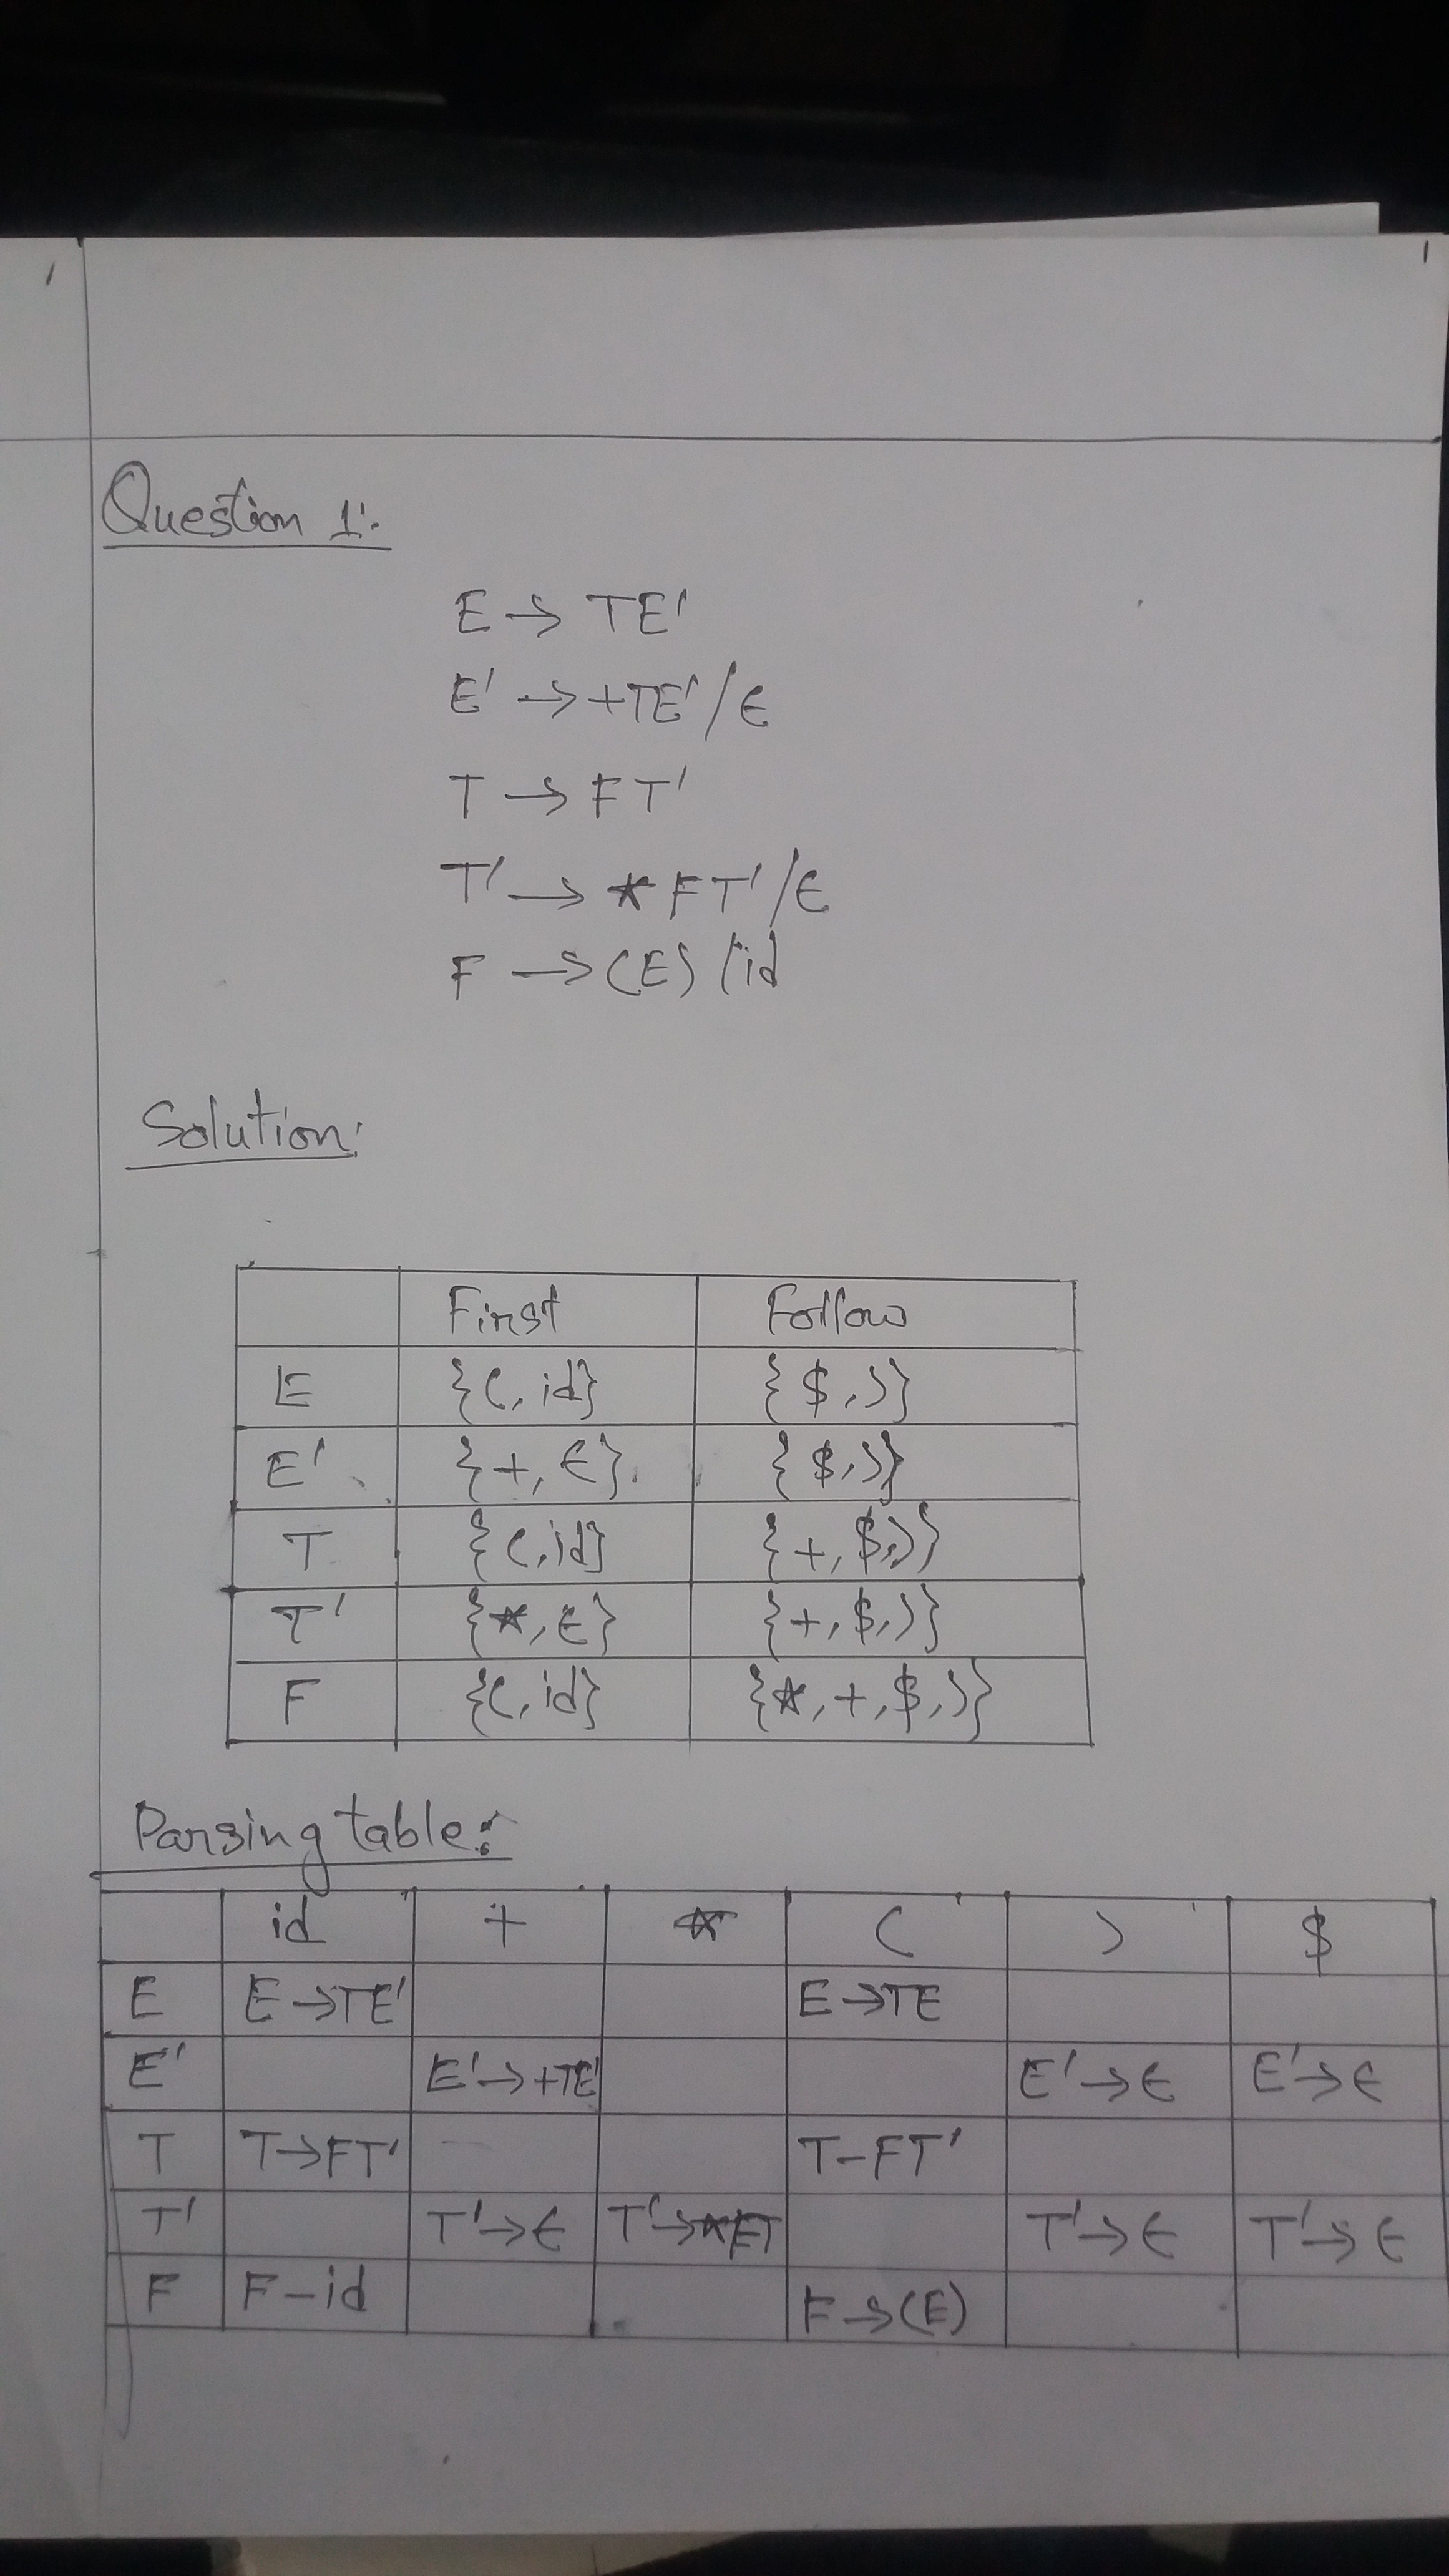 Question 1:
E → TE'
E' → +TE'/ϵ
T → FT'
T' → *FT'/ϵ
F → (E)/id
Solution:
First Follow
E {(,id} {$,)}
E' {+,ϵ} {$,)}
T {(,id} {+,$,)}
T' {*,ϵ} {+,$,)}
F {(,id} {*,+,$,)}
Parsing table:
id + * ( ) $
E E→TE' E→TE
E' E'→+TE' E'→ϵ E'→ϵ
T T→FT' T-FT'
T' T'→ϵ T'→*FT T'→ϵ T'→ϵ
F F-id F→(E)